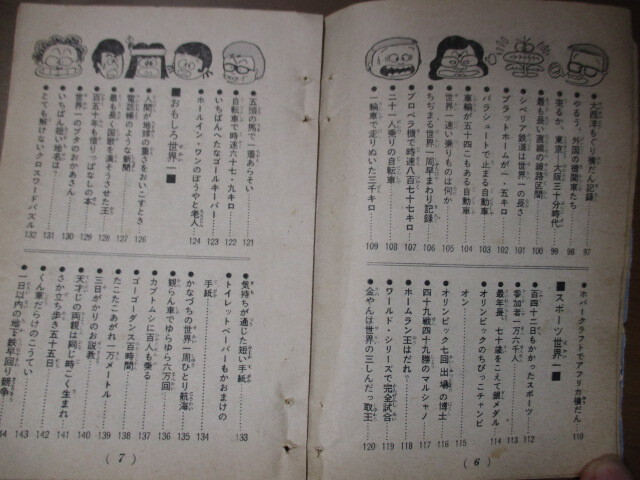 ●大西洋もぐり横だん記録……97
●やるう。外国の猪復車たち……98
●来るか、東京―大阪三十分時代……99
●最も長い直線の線路区間……100
●シベリア鉄道は世界一の長さ……101
●プラットホームが一・五キロ……102
●パラシュートで止まる自動車……103
●車輪が五十四こもある自動車……104
●世界一速い乗りものは何か……105
●ちぢまる世界一周早まわり記録……106
●プロペラ機で時速八百七十七キロ……107
●二十一人乗りの自転車……108
●一輪車で走りぬいた三千キロ……109
●ホバークラフトでアフリカ横だん…110
■スポーツ世界一■
●百四十二日もかかったスポーツ……112
●参加者一万六千人……113
●最年長、七十歳をこえて銀メダル…114
●オリンピックのちびっこチャンピオン……115
●オリンピック七回出場の博士……116
●四十九戦四十九勝のマルシャノ……117
●ホームラン王はだれ?……118
●ワールド・シリーズで完全試合……119
●金やんは世界の三しんだっ取王……120
(6)
●五頭の馬で一着あらそい……121
●自転車で時速六十七・九キロ……122
●いちばんへたなゴールキーパー……123
●ホールイン・ワンのぼうやと老人…124
■おもしろ世界一■
●人間が地球の重さをおいこすとき…126
●電話帳のような新聞……127
●最も長い国歌を演そうさせた王……128
●百五十年も借りっぱなしの本……129
●世界一のブタのおかあさん……130
●いちばん短い地名は?……131
●とても解けないクロスワードパズル 132
●気持ちが通じた短い手紙……133
●トイレットペーパーもかおまけの手紙……134
●かなづちの世界一周ひとり航海……135
●観らん車でゆらゆら六万回……136
●カブトムシに百人も乗る……137
●ゴーゴーダンス百時間……138
●たこたこあがれ一万メートル……139
●三日がかりのお説教……140
●天才じの両親は同じ時こく生まれ…141
●さか立ち歩き五十五日……142
●くん章だらけのこうてい……143
●一日以内の地下鉄早回り競争……
(7)